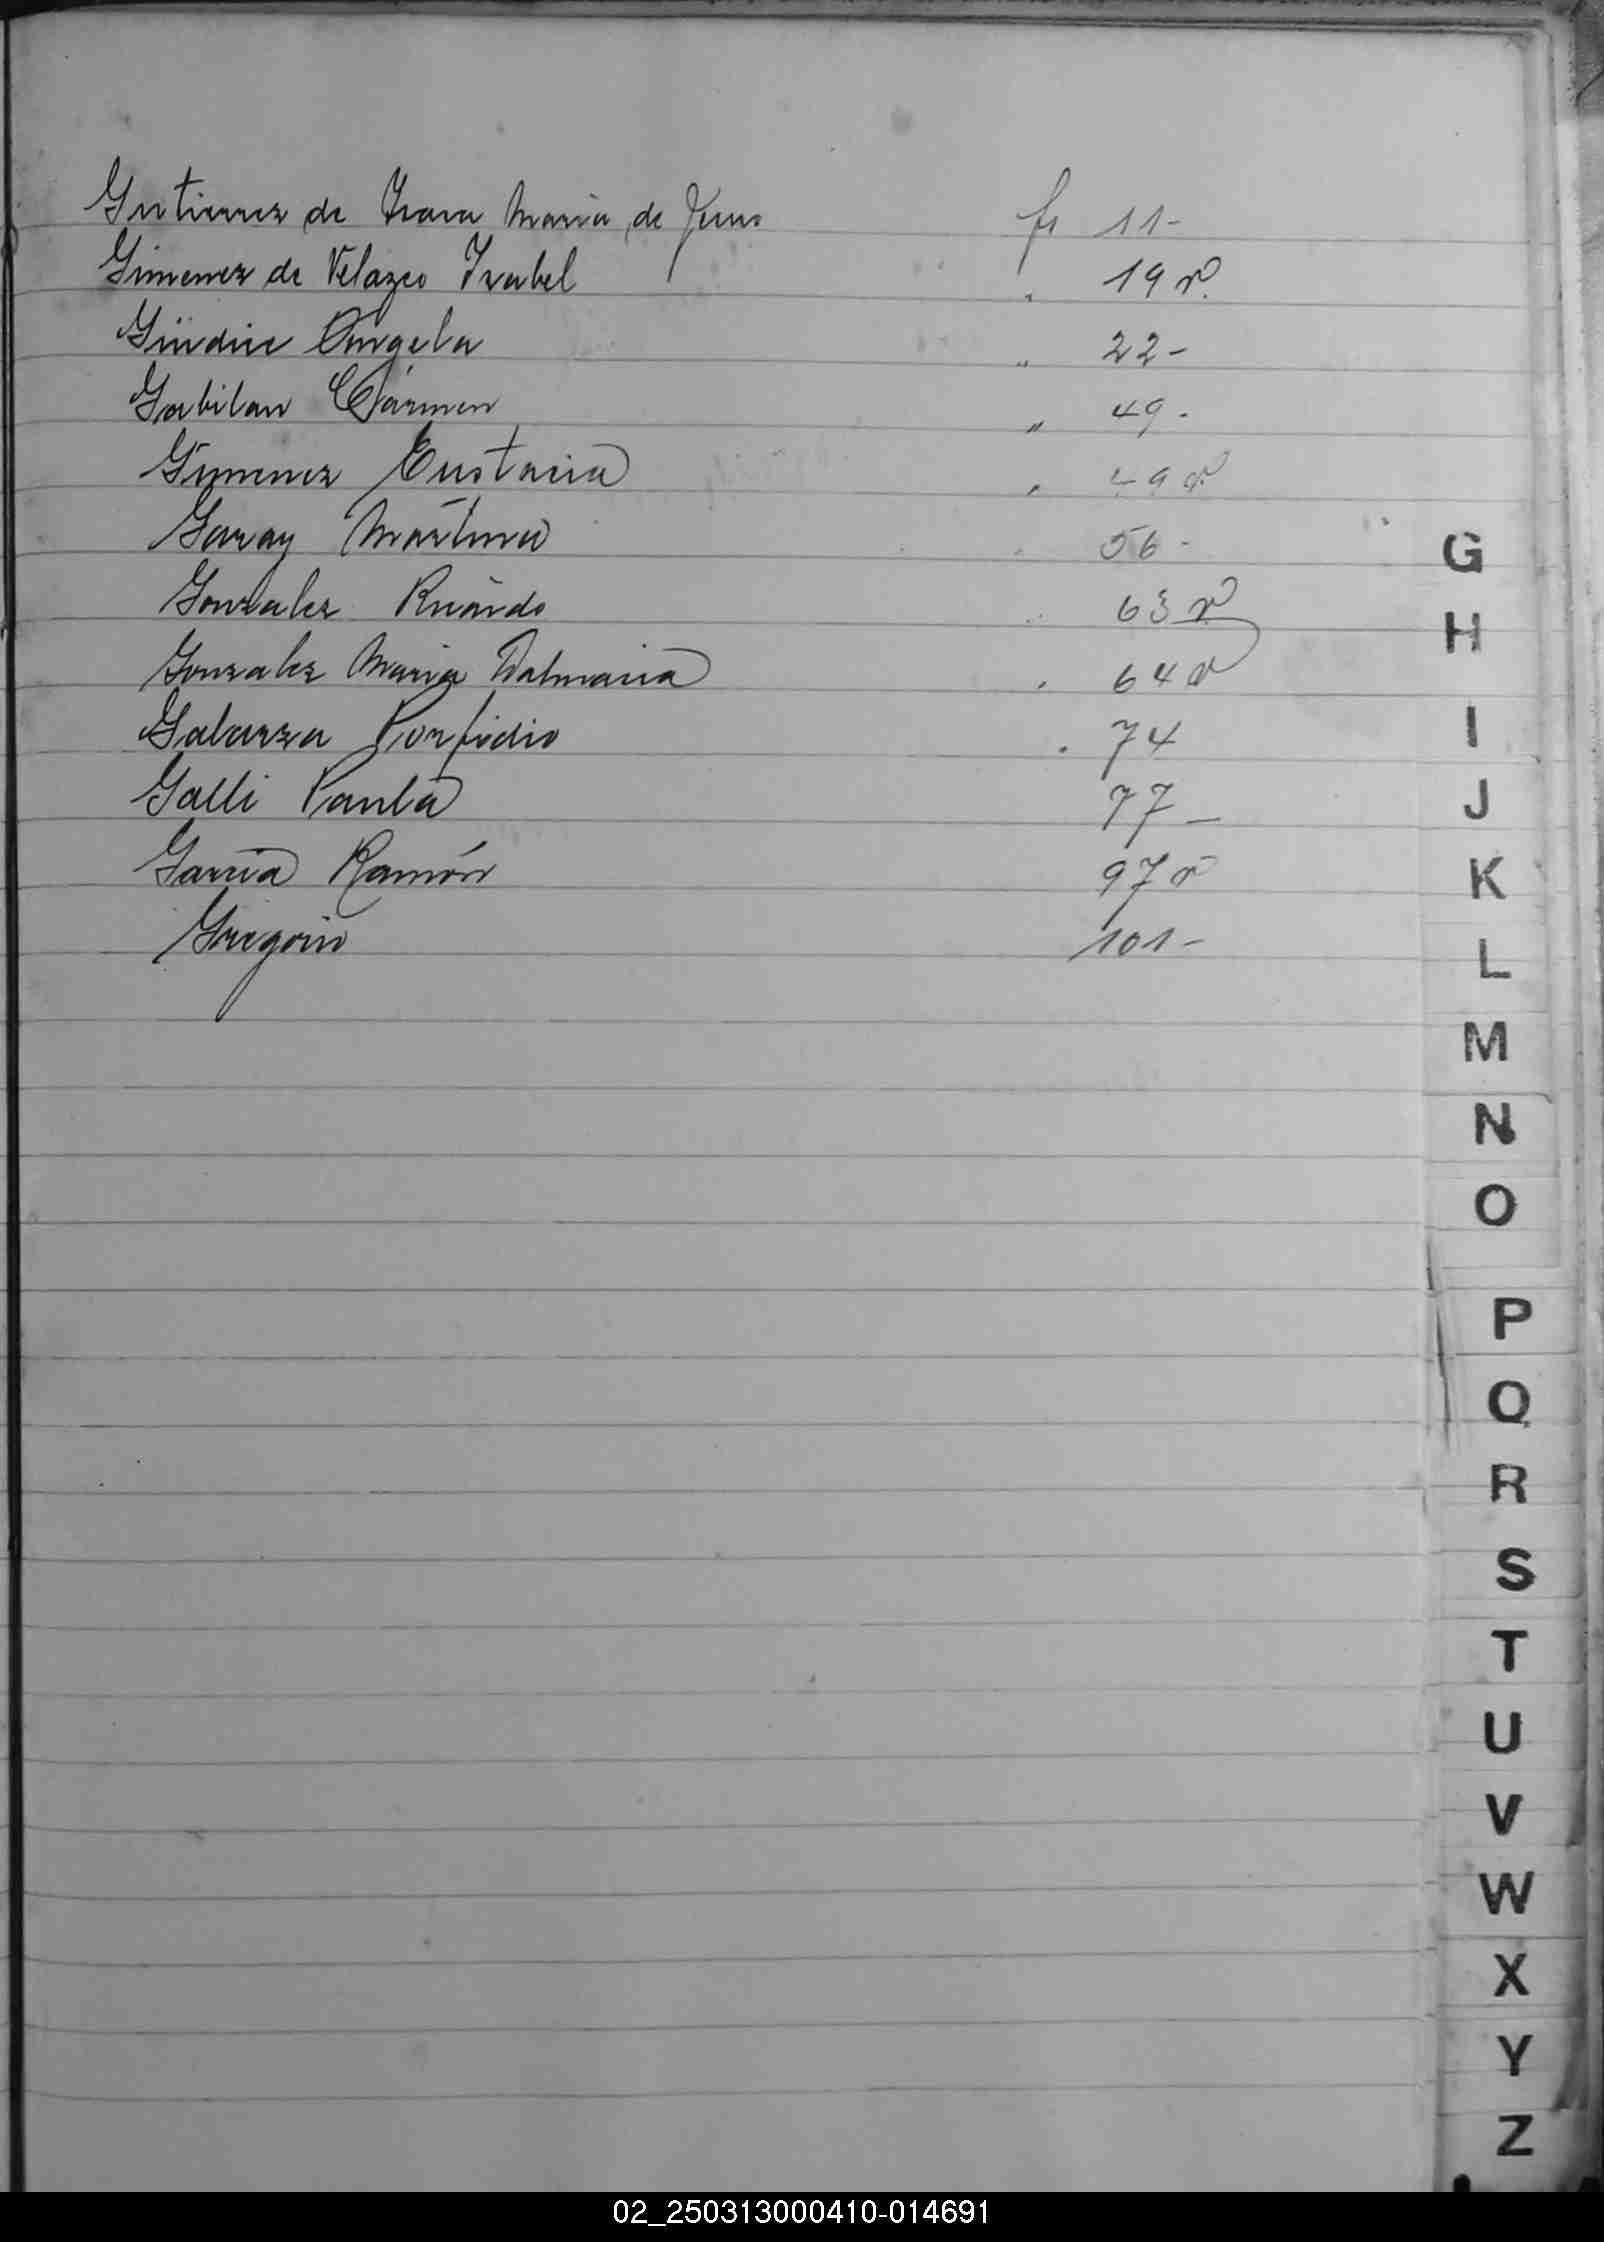 Gutierrez de Isava Maria de Jesus fs 11-
Gimenez de Velazco Isabel " 19 v.
Giudice Angela " 22-
Gabilan Carmen " 49.
Gimenez Eustacia " 49 v
Garay Martina " 56-
Gonzalez Ricardo " 63 v
Gonzalez Maria Dalmacia " 64 v
Galarza Porfidio " 74
Galli Paula 77-
Garcia Ramón 97 v
Gregorio 101-
G
H
I
J
K
L
M
N
O
P
Q
R
S
T
U
V
W
X
Y
Z
02_250313000410-014691